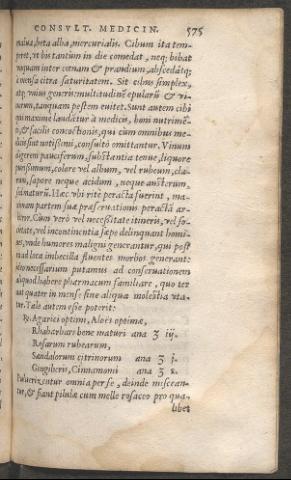 CONSVLT. MEDICIN. 575
malua, beta alba, mercurialis. Cibum ita tem-
pret, vt bis tantùm in die comedat, neq; bibat
vnquam inter cœnam & prandium, abscedatq;
à mensa citra saturitatem. Sit cibus simplex,
atq; vnius generis: multitudinē epularũ & vi-
norum, tanquam pestem euitet. Sunt autem cibi
qui maxime laudãtur à medicis, boni nutrimẽ-
ti, & facilis concoctionis, qui cùm omnibus me-
dicis sint notißimi, consultò omittantur. Vinum
eligerem pauciferum, substantia tenue, liquore
purißimum, colore vel album, vel rubeum, cla-
rum, sapore neque acidum, neque austerum,
sed maturũ. Hæc vbi ritè peracta fuerint, ma-
ximam partem suæ præseruationis peractã ar-
bitror. Cùm verò vel neceßitate itineris, vel so-
cietate, vel incontinentia sæpe delinquant homi-
nes, vnde humores maligni generantur, qui post
ad loca imbecilla fluentes morbos generant:
ideo necessarium putamus ad conseruationem
aliquod habere pharmacum familiare, quo ter
aut quater in mense sine aliqua molestia vta-
tur. Tale autem esse poterit:
℞. Agarici optimi, Aloës optimæ,
Rhabarbari bene maturi ana ʒ iij.
Rosarum rubearum,
Sandalorum citrinorum ana ʒ j.
Gingiberis, Cinnamomi ana ʒ s.
Puluerizentur omnia per se, deinde miscean-
tur, & fiant pilulæ cum melle rosaceo pro qua-
libet